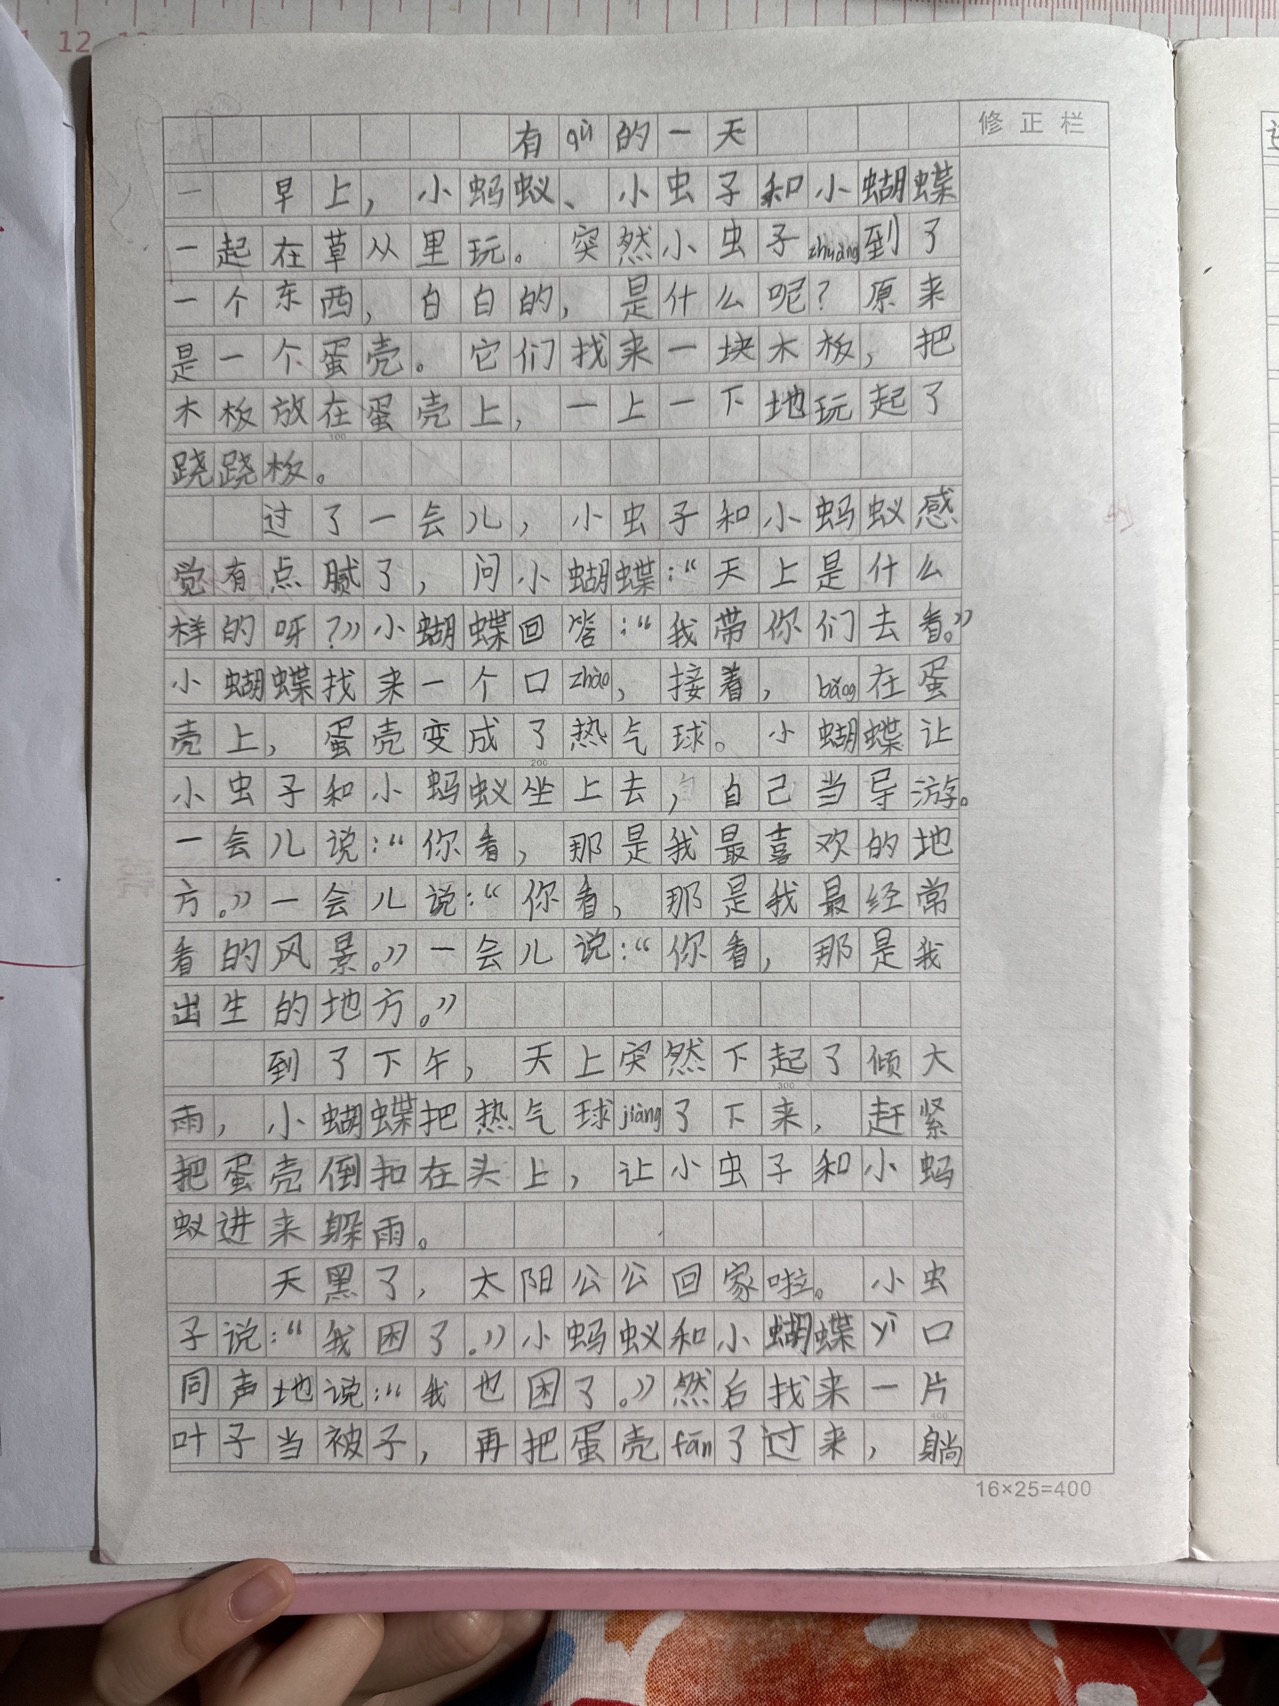 11 12 13
修正栏
有qù的一天
一 早上，小蚂蚁、小虫子和小蝴蝶
一起在草从里玩。突然小虫子zhuàng到了
一个东西，白白的，是什么呢？原来
是一个蛋壳。它们找来一块木板，把
木板放在蛋壳上，一上一下地玩起了
100
跷跷板。
过了一会儿，小虫子和小蚂蚁感
觉有点腻了，问小蝴蝶：“天上是什么
样的呀？”小蝴蝶回答：“我带你们去看。”
小蝴蝶找来一个口zhào，接着，bǎng在蛋
壳上，蛋壳变成了热气球。小蝴蝶让
200
小虫子和小蚂蚁坐上去，自己当导游。
一会儿说：“你看，那是我最喜欢的地
方。”一会儿说：“你看，那是我最经常
看的风景。”一会儿说：“你看，那是我
出生的地方。”
到了下午，天上突然下起了倾大
300
雨，小蝴蝶把热气球jiàng了下来，赶紧
把蛋壳倒扣在头上，让小虫子和小蚂
蚁进来躲雨。
天黑了，太阳公公回家啦。小虫
子说：“我困了。”小蚂蚁和小蝴蝶yì口
同声地说：“我也困了。”然后找来一片
400
叶子当被子，再把蛋壳fān了过来，躺
16×25=400